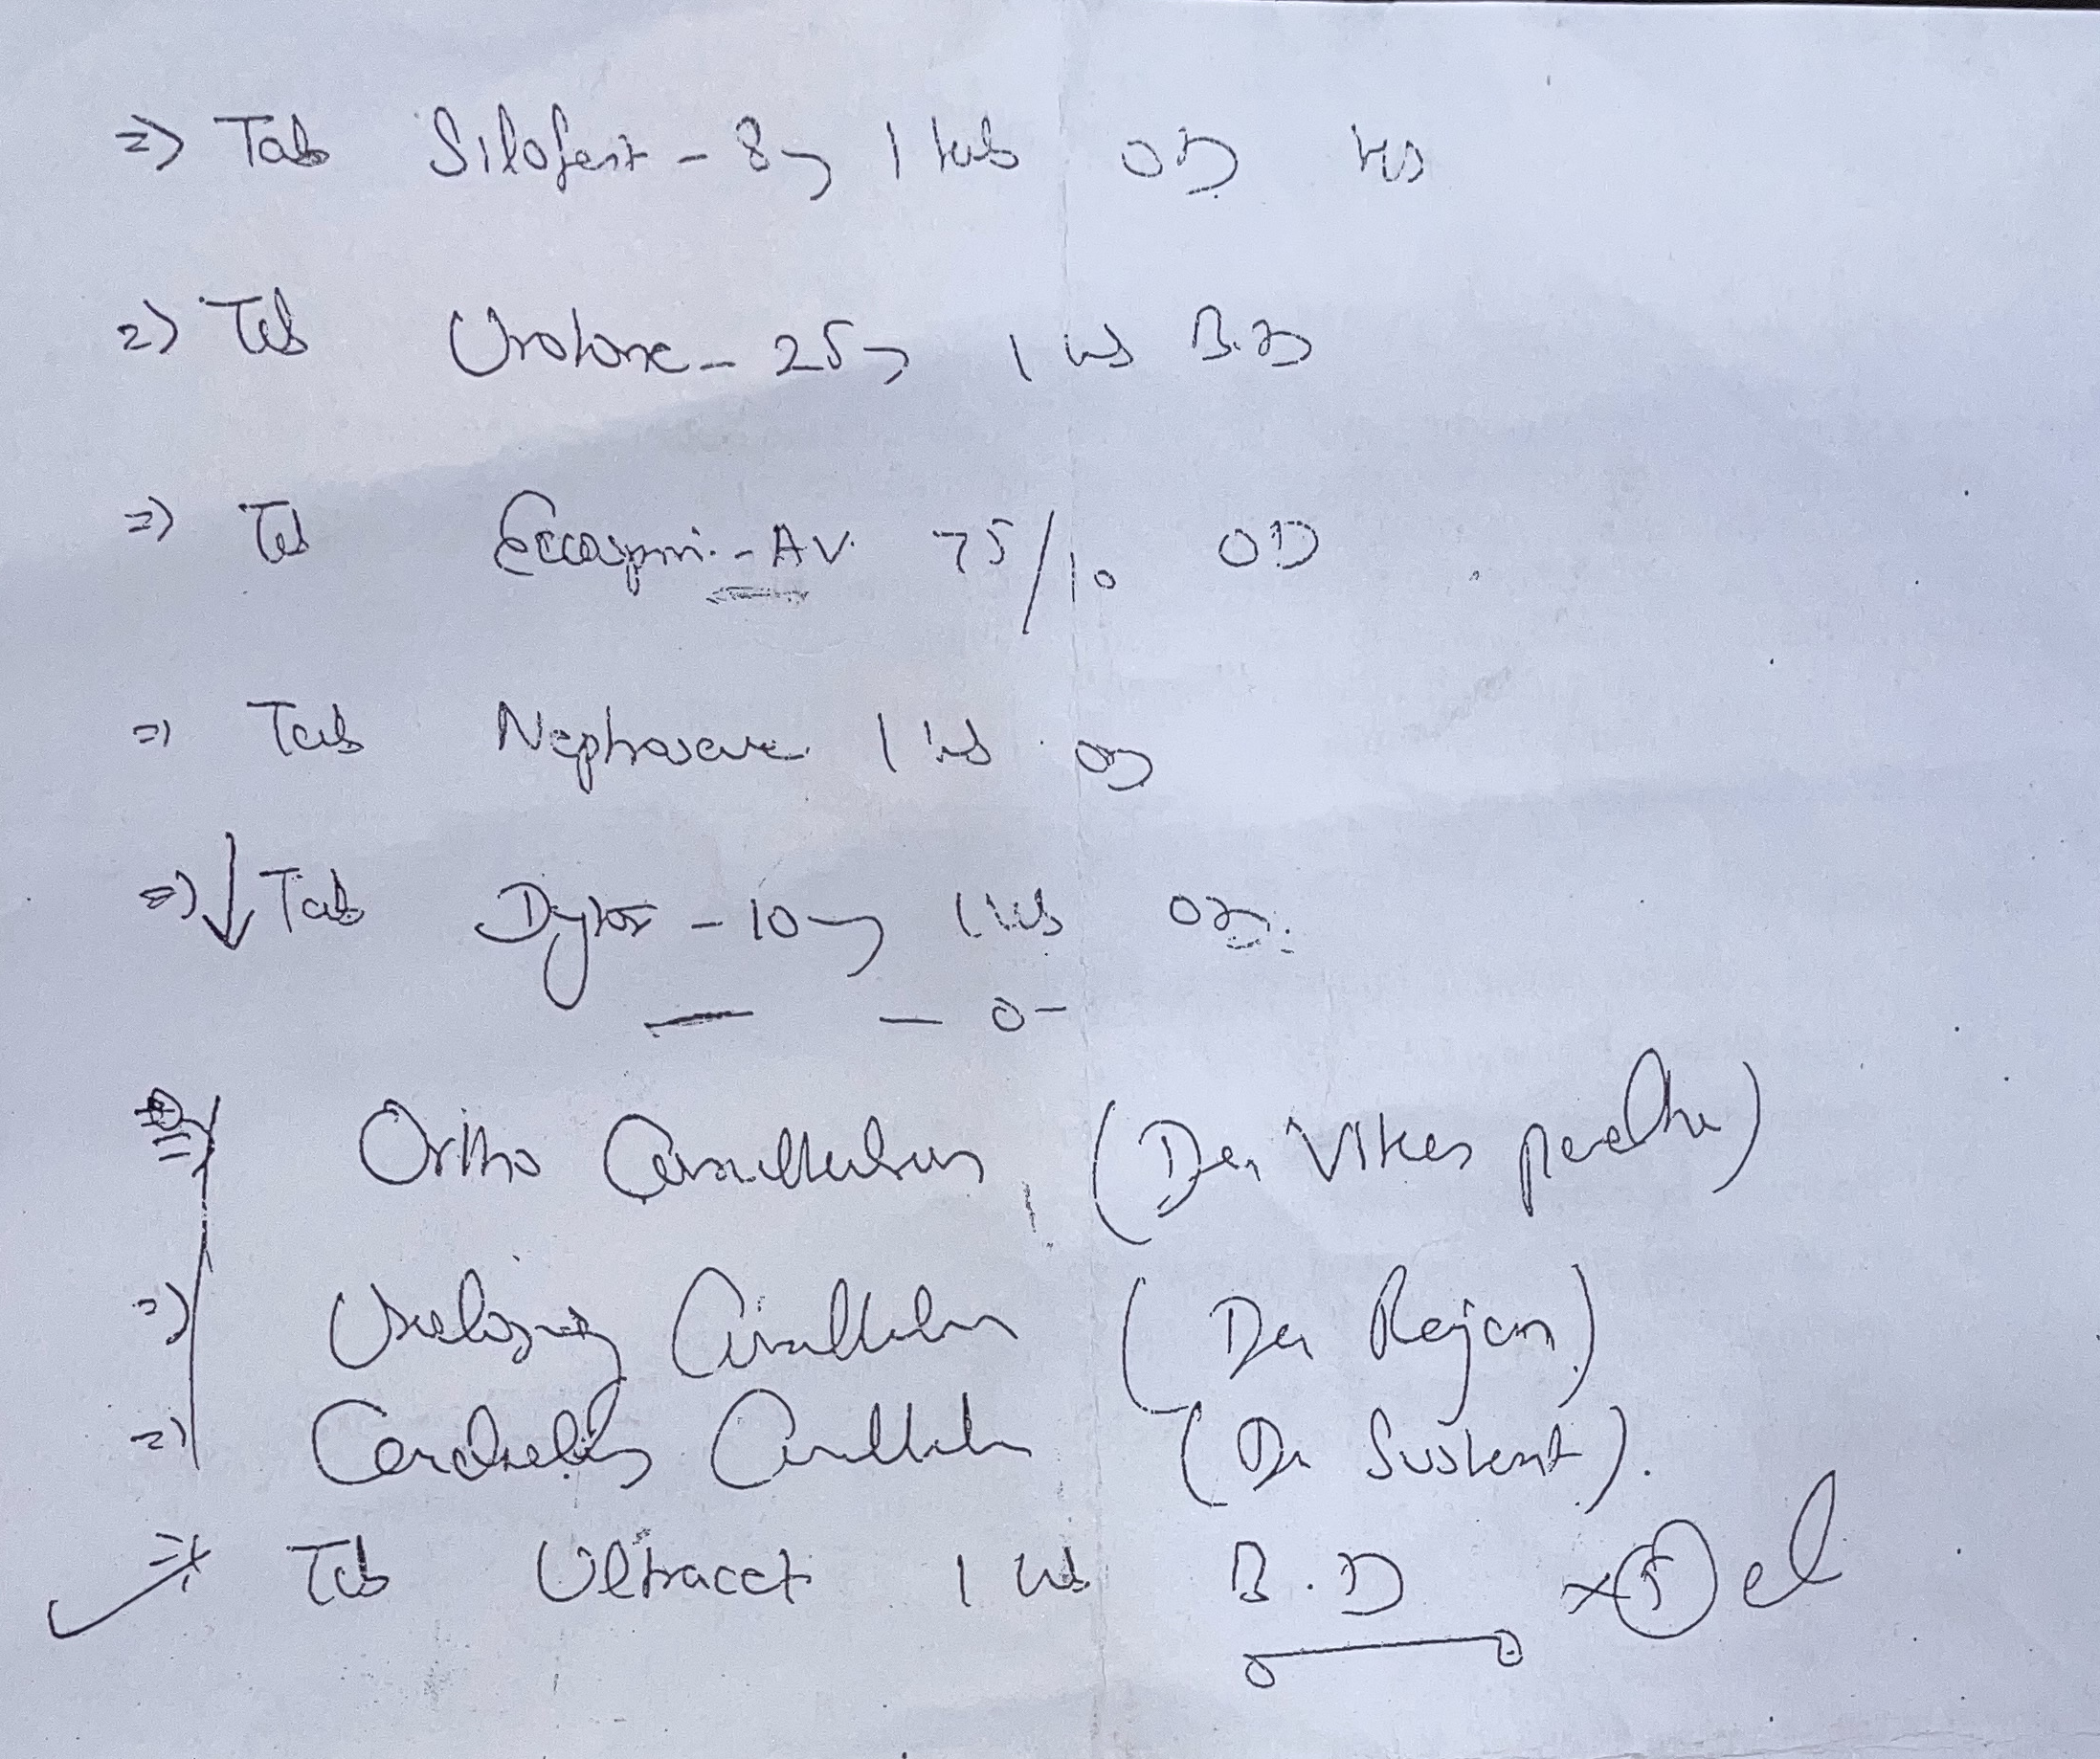 =) Tab Silofast - 8mg 1 tab OD HS
=) Tab Urotone - 25mg 1 tab B.D
=) Tab Ecosprin - AV 75/10 OD
=) Tab Nephrosave 1 tab OD
=) ↓ Tab Dytor - 10mg 1 tab OD
— — 0 —
=) Ortho Consultation (Dr Vikas
=) Urology Consultation (Dr Rajan)
=) Cardiology Consultation (Dr
=) Tab Ultracet 1 tab B.D x 5